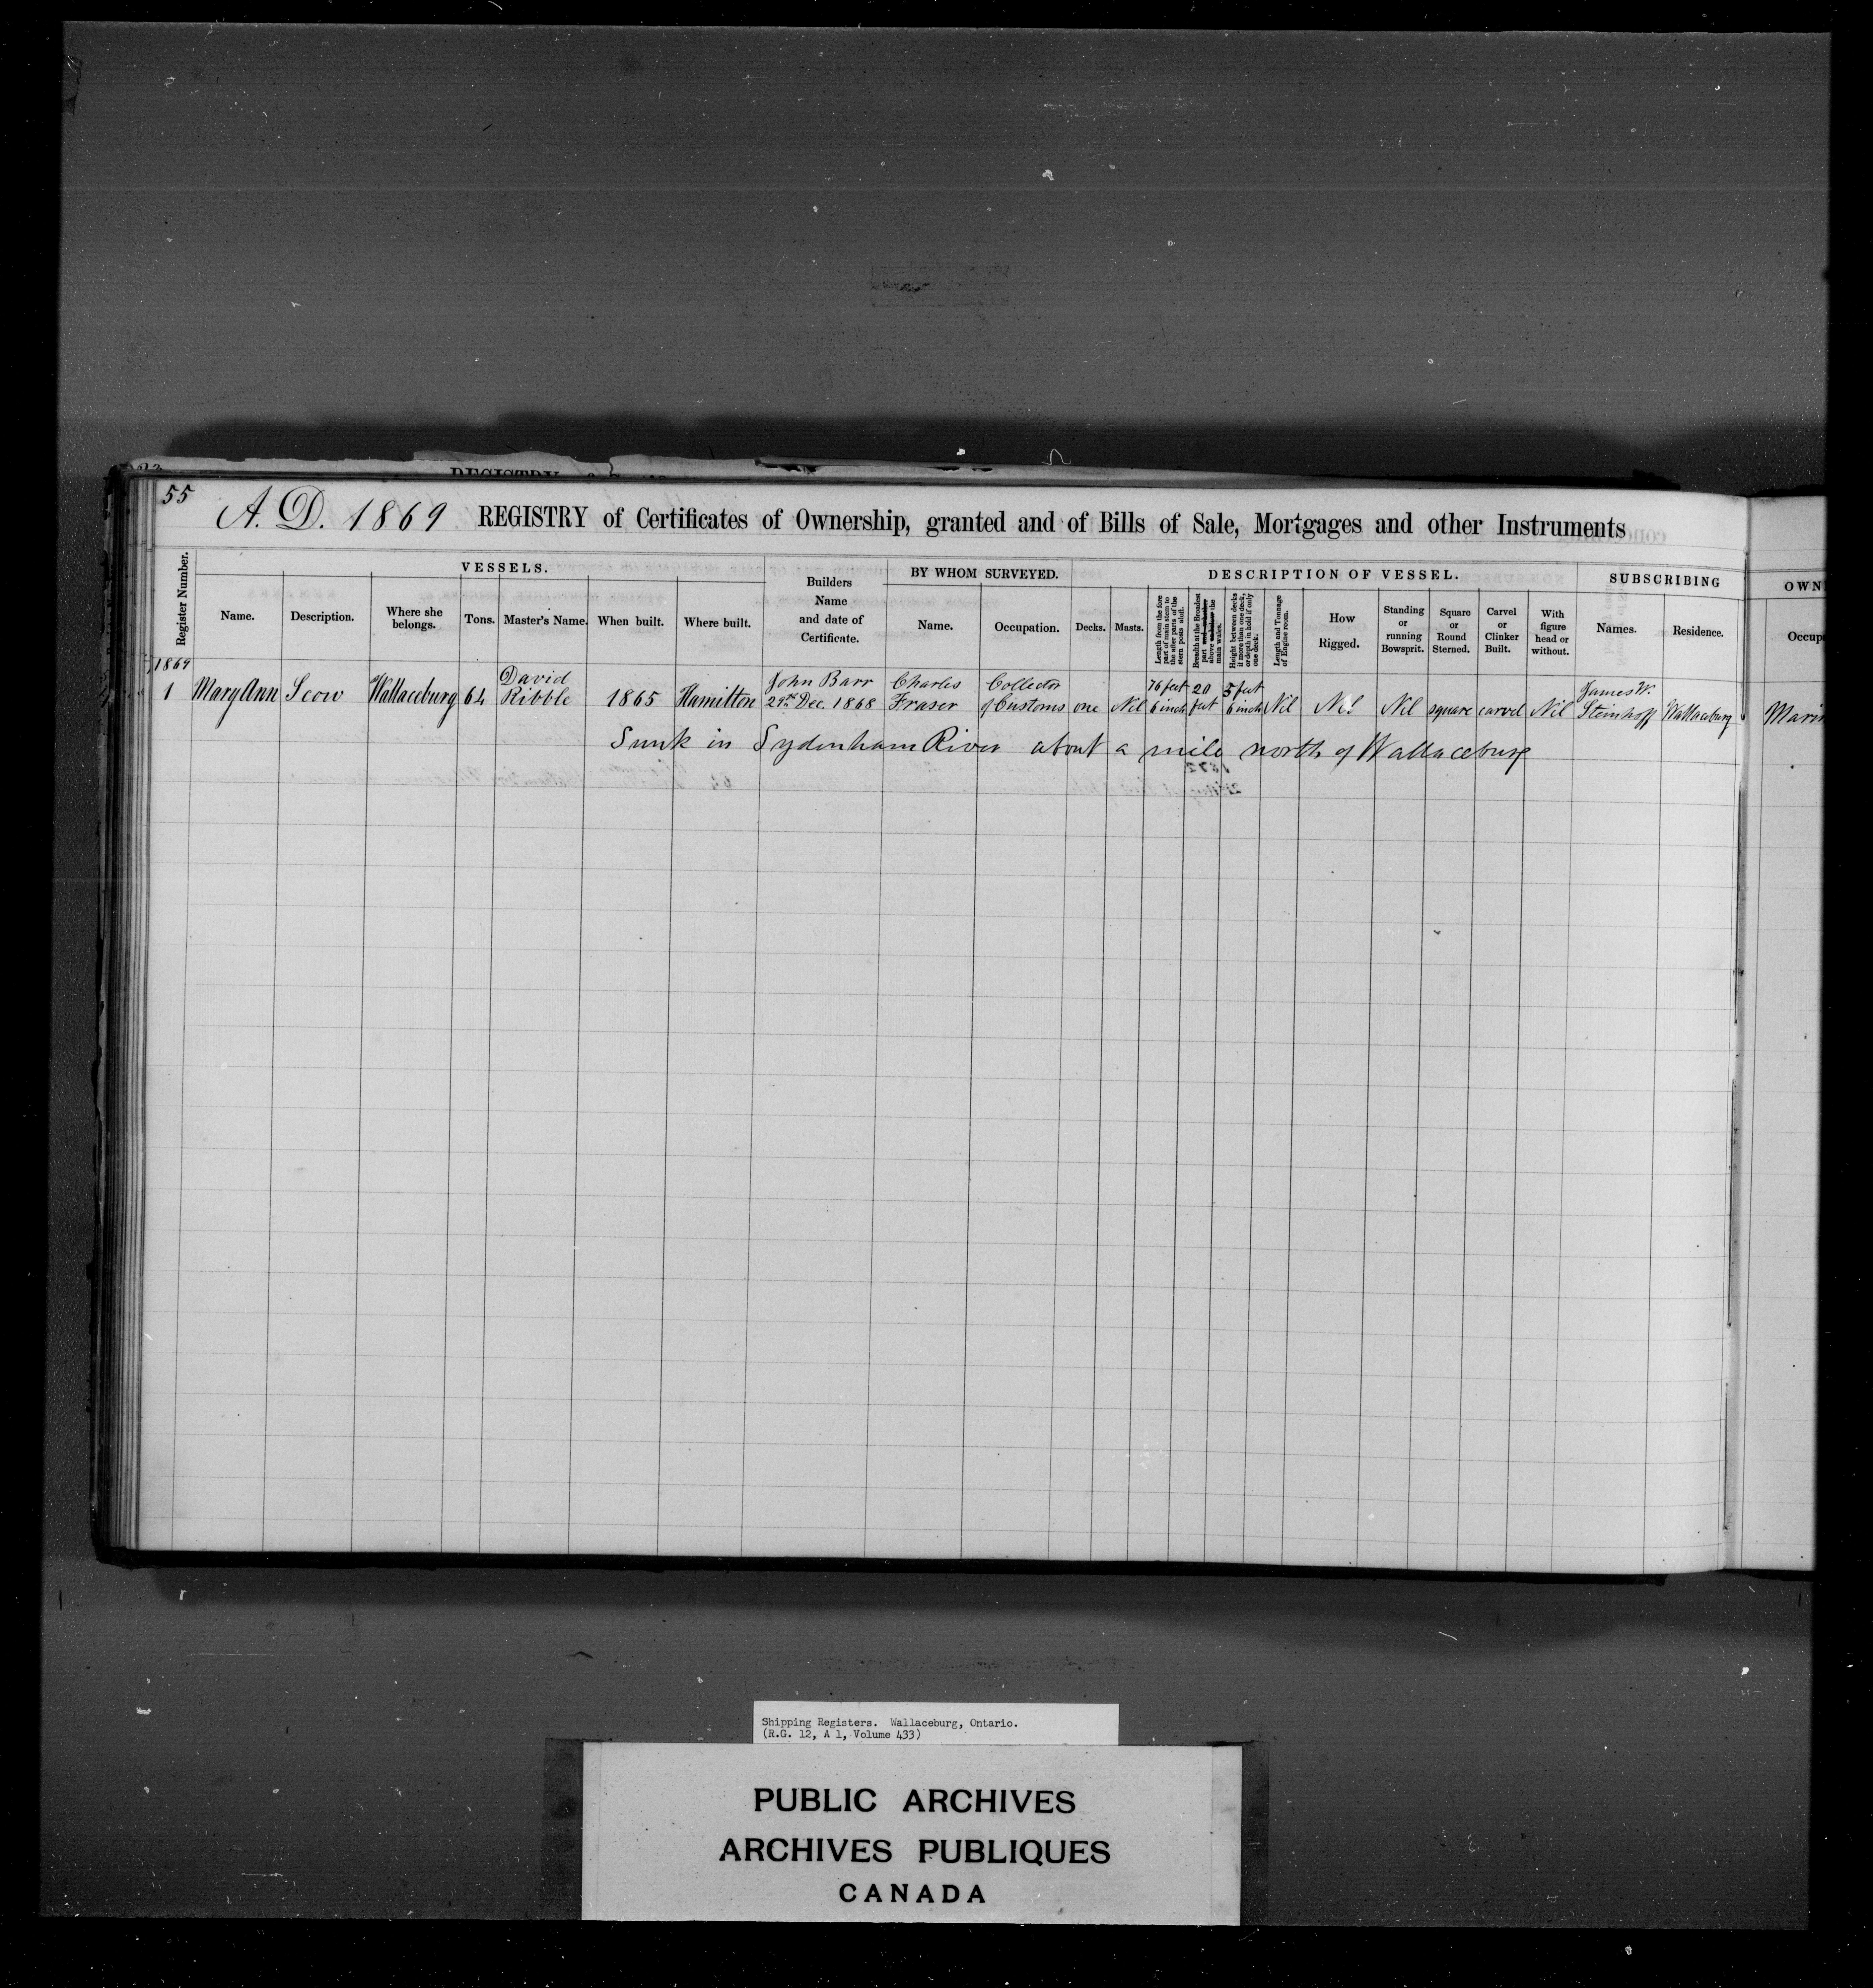 55
A. D. 1869 REGISTRY of Certificates of Ownership, granted and of Bills of Sale, Mortgages and other Instruments
Register Number.
VESSELS.
Name.
Description.
Where she belongs.
Tons.
Master's Name.
When built.
Where built.
Builders Name and date of Certificate.
BY WHOM SURVEYED.
Name.
Occupation.
DESCRIPTION OF VESSEL.
Decks.
Masts.
Length from the fore part of main stem to the after parts of the stern posts aloft.
Breadth at the Broadest part above the main wales.
Height between decks if more than one deck, or depth in hold if only one deck.
Length and Tonnage of Engine room.
How Rigged.
Standing or running Bowsprit.
Square or Round Sterned.
Carvel or Clinker Built.
With figure head or without.
SUBSCRIBING
Names.
Residence.
OWN
Occup
1869
1 Mary Ann Scow Wallaceburg 64 David Ribble 1865 Hamilton John Barr 29th Dec. 1868 Charles Fraser Collector of Customs one Nil 76 feet 6 inch 20 feet 5 feet 6 inch Nil Nil Nil square carvel Nil James W. Steinhoff Wallaceburg Mari
Sunk in Sydenham River about a mile north of Wallaceburg
Shipping Registers. Wallaceburg, Ontario.
(R.G. 12, A 1, Volume 433)
PUBLIC ARCHIVES
ARCHIVES PUBLIQUES
CANADA